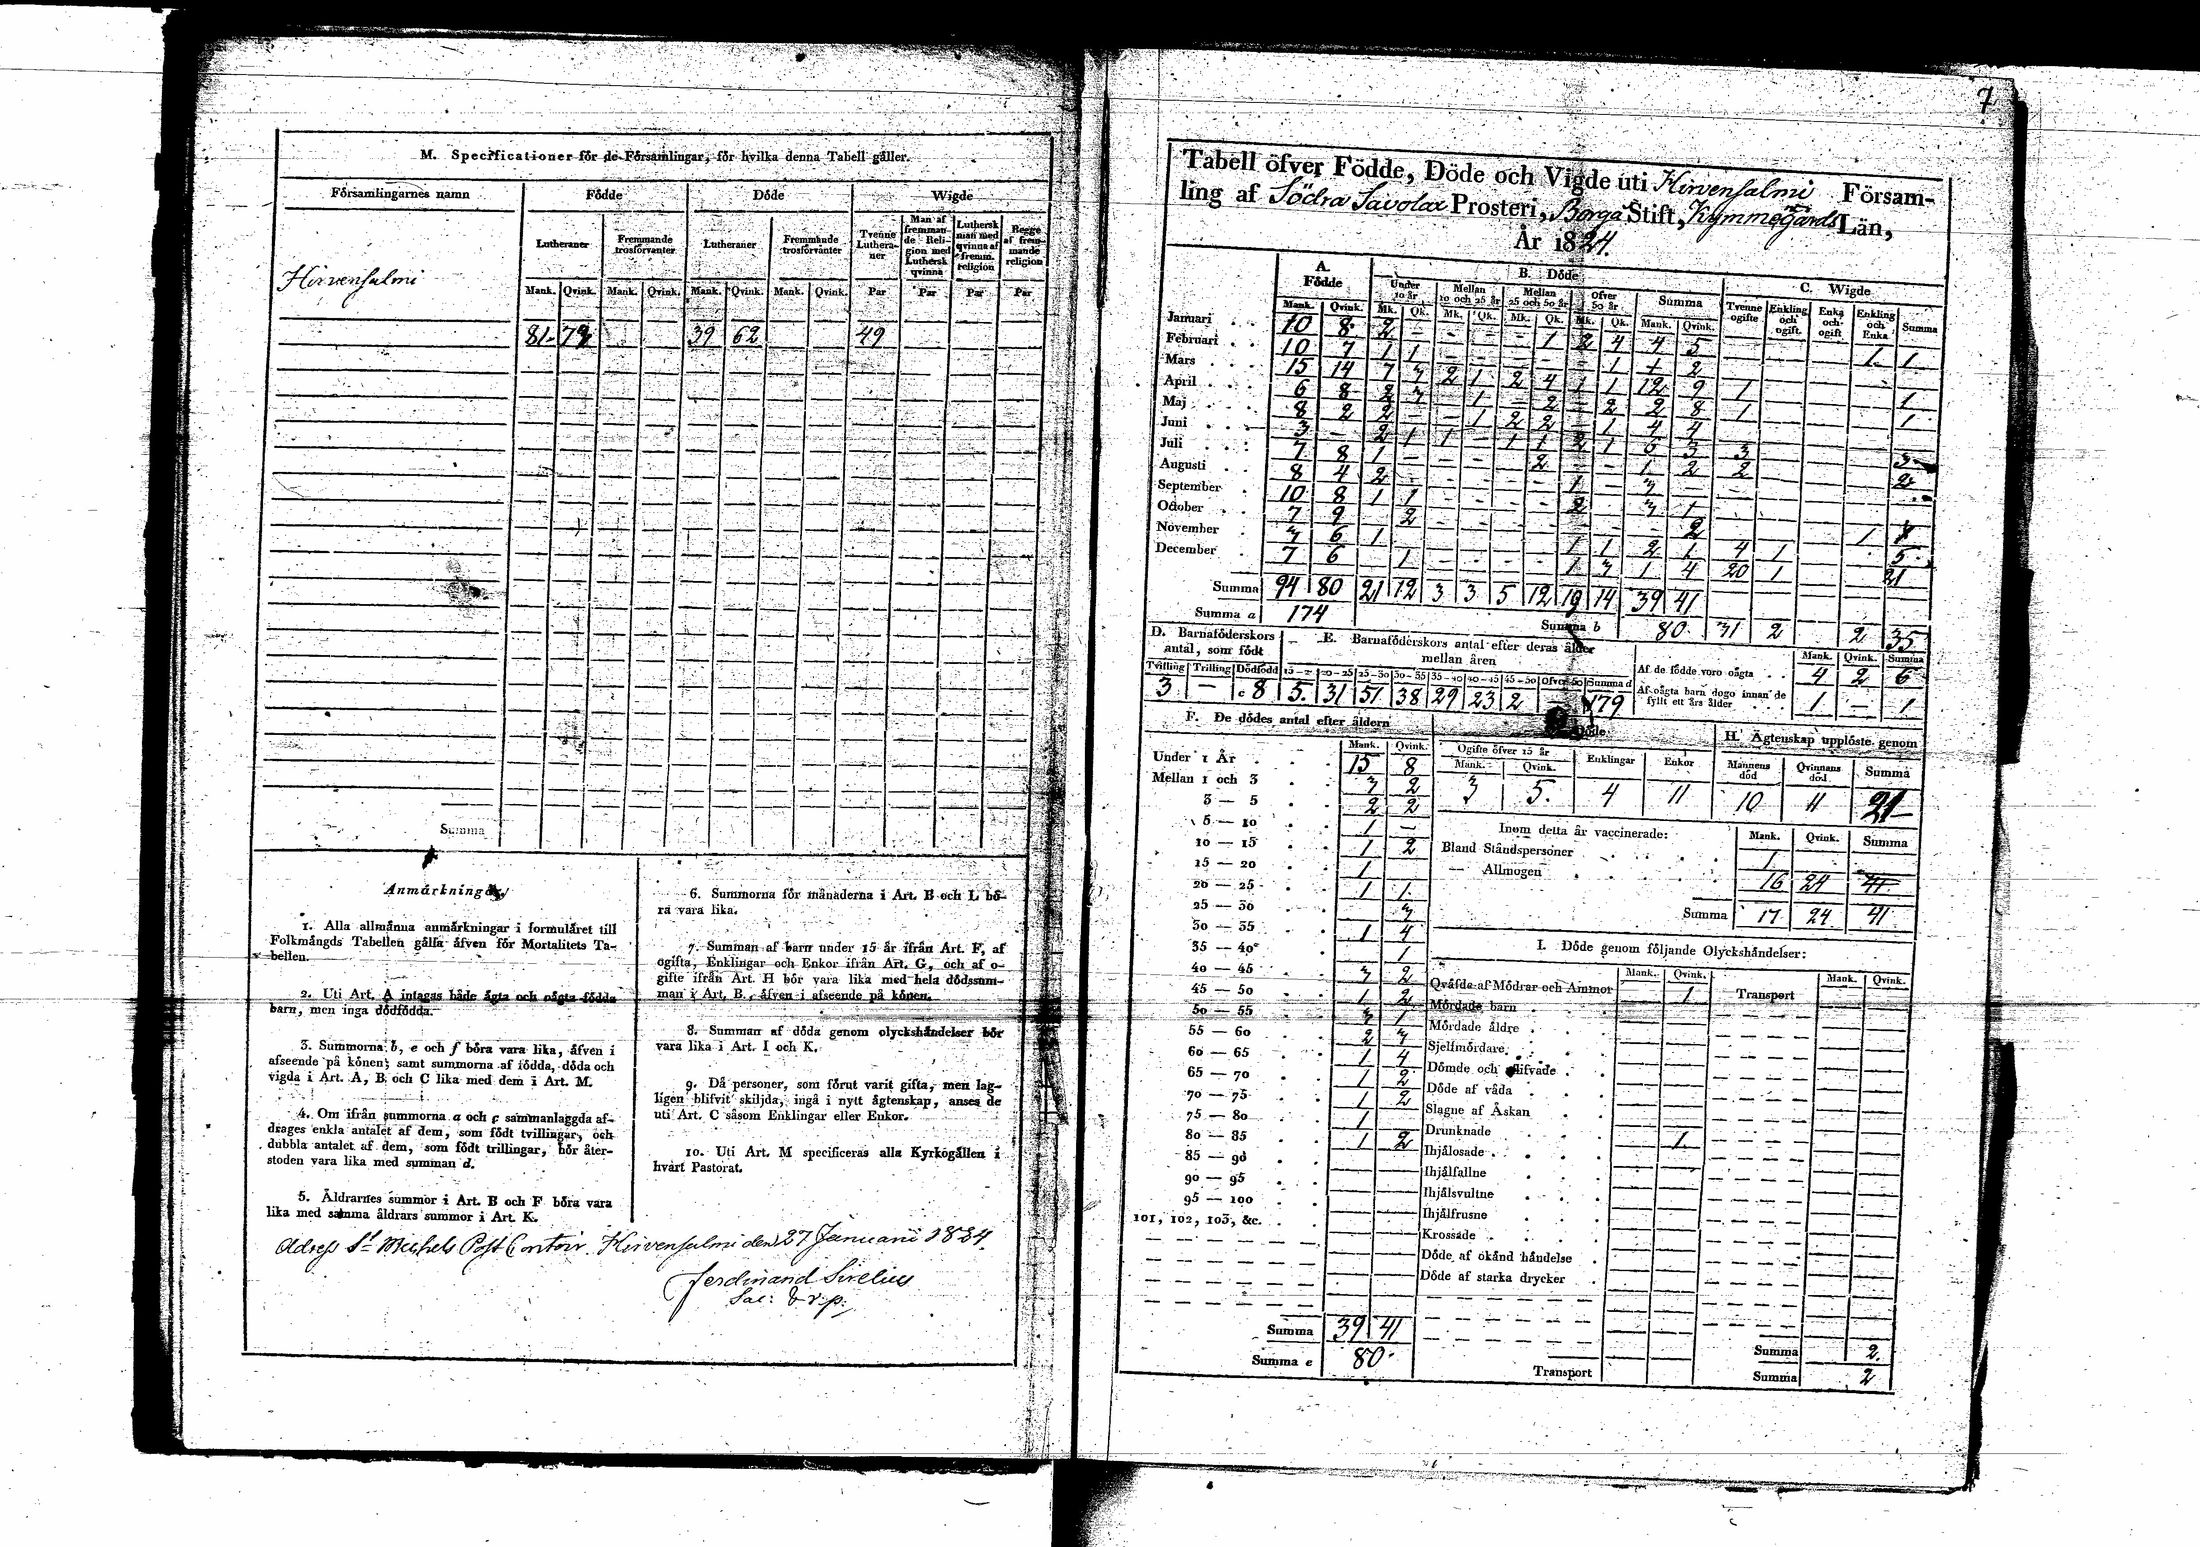 M. Specificationer för de Församlingar, för hvilka denna Tabell gäller.
Församlingarnes namn Födde Döde Wigde
Lutheraner Fremmande trosförvanter Lutheraner Fremmande trosförvanter Tvenne Lutheraner Man af fremmande Religion med Luthersk qvinna Luthersk man med qvinna af fremm. religion Begge af fremmande religion
Mank. Qvink. Mank. Qvink. Mank. Qvink. Mank. Qvink. Par Par Par Par
Hirvensalmi
81 39 62 49
Summa
Anmärkningar
1. Alla allmänna anmärkningar i formuläret till
Folkmängds Tabellen gälla äfven för Mortalitets Ta-
bellen.
2. Uti Art. A intagas både ägta och oägta födda
barn, men inga dödfödda.
3. Summorna b, e och f böra vara lika, äfven i
afseende på könen; samt summorna af födda, döda och
vigda i Art. A, B och C lika med dem i Art. M.
4. Om ifrån summorna a och c sammanlaggda af-
drages enkla antalet af dem, som födt tvillingar, och
dubbla antalet af dem, som födt trillingar, bör åter-
stoden vara lika med summan d.
5. Åldrarnes summor i Art. B och F böra vara
lika med samma åldrars summor i Art. K.
6. Summorna för månaderna i Art. B och L bö-
ra vara lika.
7. Summan af barn under 15 år ifrån Art. F, af
ogifta, Enklingar och Enkor ifrån Art. G, och af o-
gifte ifrån Art. H bör vara lika med hela dödssum-
man i Art. B, äfven i afseende på könen.
8. Summan af döda genom olyckshändelser bör
vara lika i Art. I och K.
9. Då personer, som förut varit gifta, men lag-
ligen blifvit skiljda, ingå i nytt ägtenskap, anses de
uti Art. C såsom Enklingar eller Enkor.
10. Uti Art. M specificeras alla Kyrkogällen i
hvart Pastorat.
Adress St Michels Post Contoir, Hirvensalmi den 27 Januarii
Ferdinand Sirelius
Sac: & v: p:
7
Tabell öfver Födde, Döde och Vigde uti Hirvensalmi Försam-
ling af Södra Savolax Prosteri, Borgå Stift, Kymmenegårds Län,
År 1824.
A. Födde B. Döde C. Wigde
Under 10 år Mellan 10 och 25 år Mellan 25 och 50 år Öfver 50 år Summa Tvenne ogifte Enkling och ogift Enka och ogift Enkling och Enka Summa
Mank. Qvink. Mk. Qk. Mk. Qk. Mk. Qk. Mk. Qk. Mank. Qvink.
Januari 10 8 2 - - - - 1 2 4 4 5 1 1
Februari 10 7 1 1 1 2
Mars 15 14 7 3 2 1 2 4 1 1 12 9 1 1
April 6 8 2 3 - 1 - 2 - 2 2 8 1 1
Maj 8 2 2 - - 1 2 2 - 1 4 4
Juni 3 - 2 1 1 - 1 1 2 1 6 3 3 3
Juli 7 8 1 - - - - 2 - - 1 2 2 2
Augusti 8 4 2 1 3
September 10 8 1 1 2 3 1
October 7 9 2 2 1
November 3 6 1 1 1 2 1 4 1 5
December 7 6 1 1 3 1 4 20 1 21
Summa 94 80 21 12 3 3 5 12 14 39 41
Summa a 174 Summa b 80 31 2 2 35
D. Barnaföderskors antal, som födt
Tvilling Trilling Dödfödd
3 - 8
E. Barnaföderskors antal efter deras ålder mellan åren
20 - 25 25 - 30 30 - 35 35 - 40 40 - 45 45 - 50 Öfver 50 Summa d
5 31 51 38 29 23 2 - 179
Mank. Qvink. Summa
Af de födde voro oägta 4 2 6
Af oägta barn dogo innan de fyllt ett års ålder 1 - 1
F. De dödes antal efter åldern
Mank. Qvink.
Under 1 År 15 8
Mellan 1 och 3 3 2
3 — 5 2 2
5 — 10 1 -
10 — 15 1 2
15 — 20 1
20 — 25 1 1
25 — 30 3
30 — 35 1 4
35 — 40 1
40 — 45 3 2
45 — 50 1 2
50 — 55 3 1
55 — 60 2 3
60 — 65 1 4
65 — 70 1 2
70 — 75 1 2
75 — 80 1
80 — 85 1 2
85 — 90
90 — 95
95 — 100
101, 102, 103, &c.
Summa 39 41
Summa e 80
Döde
Ogifte öfver 15 år Enklingar Enkor
Mank. Qvink.
3 5 4 11
H. Ägtenskap upplöste genom
Mannens död Qvinnans död Summa
10 11 21
Inom detta år vaccinerade: Mank. Qvink. Summa
Bland Ståndspersoner 1
— Allmogen 16 24 41
Summa 17 24 41
I. Döde genom följande Olyckshändelser:
Mank. Qvink. Mank. Qvink.
Qväfda af Mödrar och Ammor 1 Transport
Mördade barn
Mördade äldre
Sjelfmördare
Dömde och aflifvade
Döde af våda
Slagne af Åskan
Drunknade 1
Ihjälosade
Ihjälfallne
Ihjälsvultne
Ihjälfrusne
Krossade
Döde af okänd händelse
Döde af starka drycker
Transport
Summa 2
Summa 2